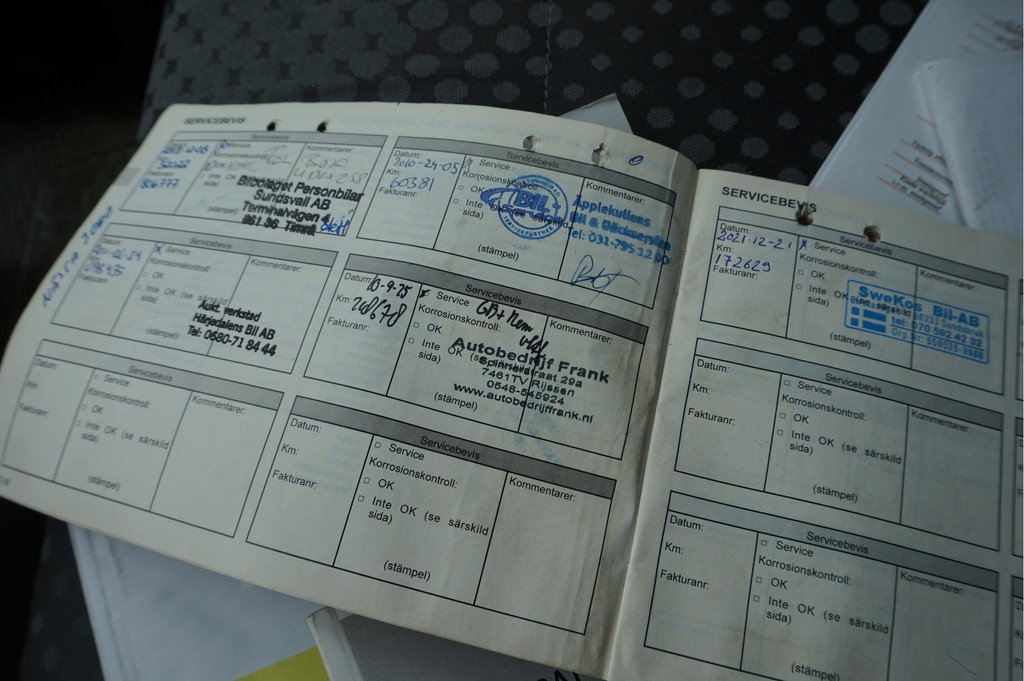 SERVICEBEVIS
Servicebevis
Korrosionskontroll:
Kommentarer:
Bilbolaget Personbilar
Sundsvall AB
Terminalvägen 4
861 36 Timrå
(stämpel)
Servicebevis
Datum:
2010-24-05
Km:
60381
Fakturanr:
Service
Korrosionskontroll:
OK
Inte OK (se särskild
sida)
(stämpel)
Kommentarer:
BIL+
SERVICEPARTNER
Applekullens
Bil & Däckservice
tel: 031-795 12 60
Servicebevis
Service
Korrosionskontroll:
OK
Inte OK (se särskild
sida)
(stämpel)
Kommentarer:
Aukt. verkstad
Härjedalens Bil AB
Tel. 0680-71 84 44
Servicebevis
Datum:
10-9-25
Km:
268678
Fakturanr:
x Service
Korrosionskontroll:
OK
Inte OK (se särskild
sida)
(stämpel)
Kommentarer:
Autobedrijf Frank
Spinnerstraat 29a
7461TV Rijssen
0548-545924
www.autobedrijffrank.nl
Servicebevis
Datum:
Km:
Fakturanr:
Service
Korrosionskontroll:
OK
Inte OK (se särskild
sida)
(stämpel)
Kommentarer:
Servicebevis
Datum:
Km:
Fakturanr:
Service
Korrosionskontroll:
OK
Inte OK (se särskild
sida)
(stämpel)
Kommentarer:
SERVICEBEVIS
Servicebevis
Datum:
2021-12-21
Km:
172629
Fakturanr:
x Service
Korrosionskontroll:
OK
Inte OK (se särskild
sida)
(stämpel)
Kommentarer:
SweKos Bil-AB
tel: 070 592 42 82
Servicebevis
Datum:
Km:
Fakturanr:
Service
Korrosionskontroll:
OK
Inte OK (se särskild
sida)
(stämpel)
Kommentarer:
Servicebevis
Datum:
Km:
Fakturanr:
Service
Korrosionskontroll:
OK
Inte OK (se särskild
sida)
(stämpel)
Kommentarer: